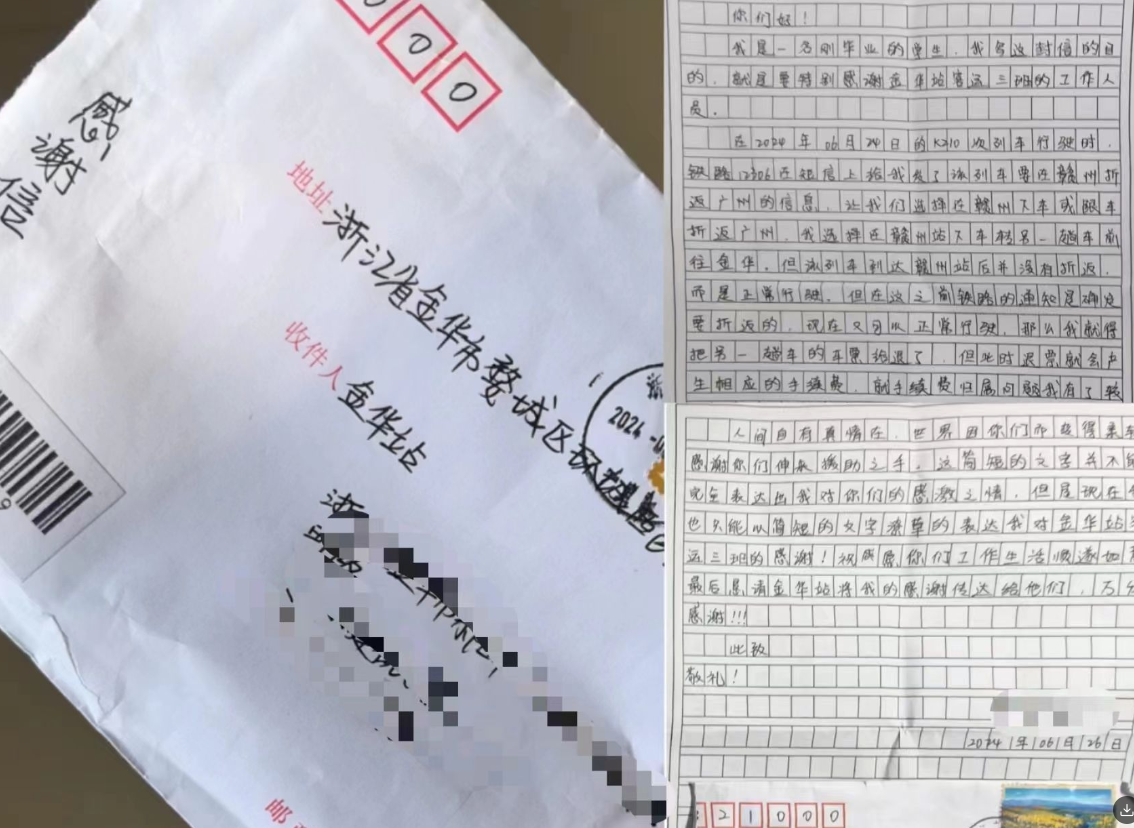 0 0 0
感谢信
地址 浙江省金华市婺城区
收件人 金华站
浙
2024
9
邮
你们好！
我是一名刚毕业的学生，我写这封信的目
的，就是要特别感谢金华站客运三班的工作人
员。
在2024年06月24日的K210次列车行驶时，
铁路12306在短信上给我发了该列车要在赣州折
返广州的信息，让我们选择在赣州下车或跟车
折返广州，我选择在赣州站下车转另一趟车前
往金华，但该列车到达赣州站后并没有折返，
而是正常行驶，但在这之前铁路的通知是确定
要折返的，现在又可以正常行驶，那么我就得
把另一趟车的车票给退了，但此时退票就会产
生相应的手续费，就手续费归属问题我有了较
人间自有真情在，世界因你们而变得
感谢你们伸救援助之手，这简短的文字并不能
完全表达出我对你们的感激之情，但是现在
也只能以简短的文字潦草的表达我对金华站
运三班的感谢！祝愿你们工作生活顺遂如
最后恳请金华站将我的感谢传达给他们，万分
感谢!!!
此致
敬礼！
2024年06月26日
21000